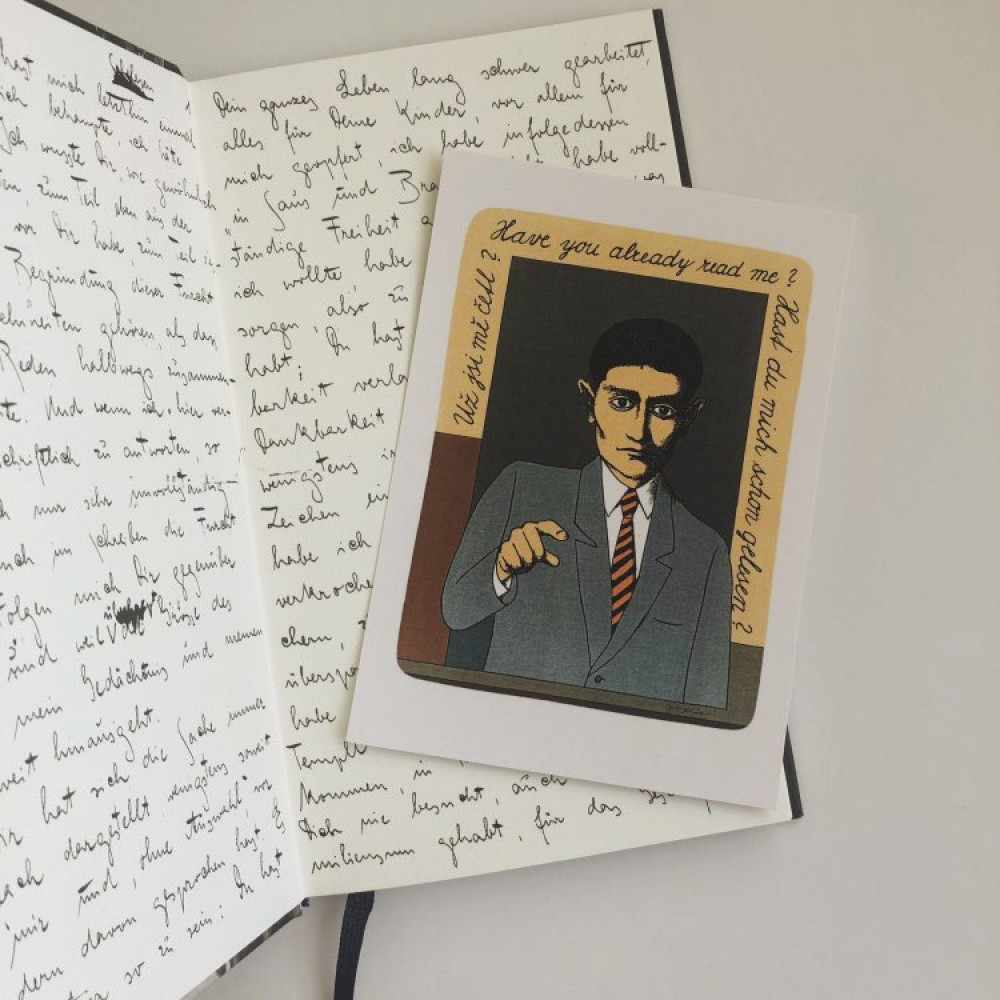 hast mich letzthin einmal
ich behaupte, ich hätte
Ich wusste Dir, wie gewöhnlich
zum Teil eben aus der
vor Dir habe, zum Teil de-
Begründung dieser Furcht
gehören, als dass
Reden halbwegs zusammen-
Und wenn ich hier ver-
schriftlich zu antworten, so
nur sehr unvollständig
auch im Schreiben die Furcht
Folgen mich Dir gegenüber
und weil die Grösse des
mein Gedächtnis und meinen
weit hinausgeht.
hat sich die Sache immer
dargestellt wenigstens soweit
mir und, ohne Auswahl vor
davon gesprochen hast. Es
so zu sein: Du hast
Dein ganzes Leben lang schwer gearbeitet,
alles für Deine Kinder, vor allem für
mich geopfert, ich habe infolgedessen
"in Saus und habe voll-
ständige Freiheit was
ich wollte habe
sorgen, also zu
habt; Du hast
barkeit verla
Dankbarkeit
wenigstens
Zeichen
habe ich
verkroche
chern,
überspa
habe
Templ
kommen, in
Dich nie besucht, auch
miliensinn gehabt, für das
Have you already read me?
Už jsi mě četl?
Hast du mich schon gelesen?